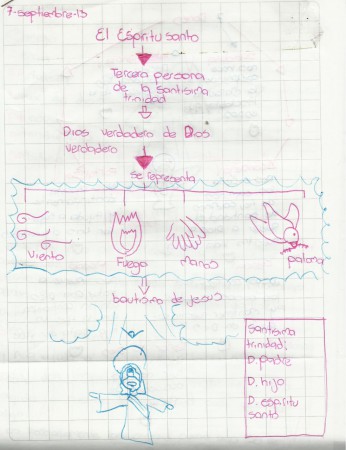 7-septiembre-13
El Espiritu santo
Tercera persona
de la santisima
trinidad
Dios verdadero de Dios
verdadero
se representa
viento
Fuego
Manos
paloma
bautismo de Jesus
santisima
trinidad:
D. padre
D. hijo
D. espiritu
santo